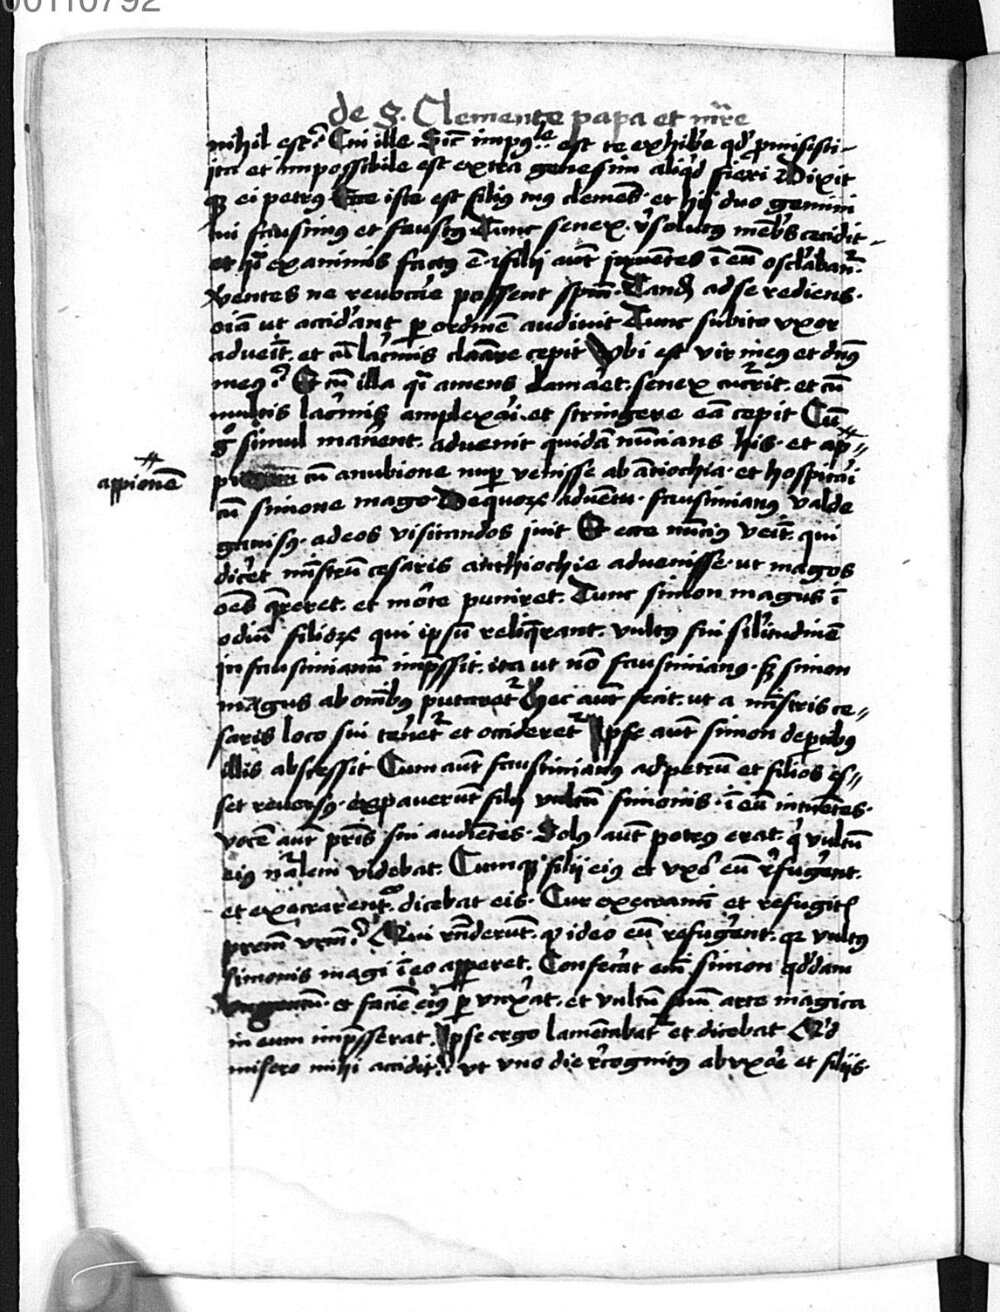 00110792
de S. Clemente papa et mr̄e
nihil est? Cui ille Sic̄ imp9le est te exhibe qd̄ pmisisti-
ita et impossibile est extra genesim aliqd̄ fieri Dixit
ei petrus Ecce iste est filius tuus clemēs· et hij duo gemini
tui faustinus et faustus Tunc senex· r̄solutus mēbris cecidit-
et q̄i exanimis factus ē· filij aut̄ irruentes ī eū osculaban̄t
v̄entes ne revocare possent spm̄· Tandē ad se rediens·
oīa ut accid'ant p ordinē audiuit Tunc subito uxor
adveīt· et cū lac̄mis clamare cepit Vbi est vir meus et dn̄s
meus? Et cū illa q̄i amens clamaret· senex cucurrit· et cū
multis lac̄mis amplexari· et stringere eā cepit Cū
g° simul manerent· advenit quidā nūcians his· et ap//
appionē
cū anubione nup venisse ab ātiochia· et hospitari
cū simone mago· De quorum adventu· faustinianus valde
gavisus· ad eos visitandos iuit Et ecce nūcius veīt· qui
dicēt mīstrū cesaris anthiochie advenisse· ut magos
oēs q̄reret· et morte puniret· Tunc simon magus ī
odiū filiorum qui ipsū reliq̄rant· vultus sui silitudinē
in faustinianū imp̄ssit· ita ut nō faustinianus· sz simon
magus ab omībus putaret Hec aut̄ fecit· ut a mīstris ce-//
saris loco sui tenēt et occideret Ipse aut̄ simon de ptibus
illis abscessit Cum aut̄ faustinianus ad petrū et filios es//
set reversus· expaverūt filij vultū simonis· ī eū intuētes·
vocē aut̄ pr̄is sui audiētes· Solus aut̄ petrus erat· q vultū
eius nālem videbat· Cumque filij eius et uxor eū r̄fugerent·
et execrarent· dicebat eis· Cur execramī et refugitis
prem̄ vrm̄? Qui rn̄derūt· q ideo eū refugerent· quia vultus
simonis magi ī eo appareret· Confecerat enī simon qd̄dam
unguentū· et faciē eius p unxerat· et vultū suū arte magica
in eum imp̄sserat· Ipse ergo lamētabat et dicebat Qid
misero mihi accidit? ut uno die r̄cognitus ab uxore et filijs·